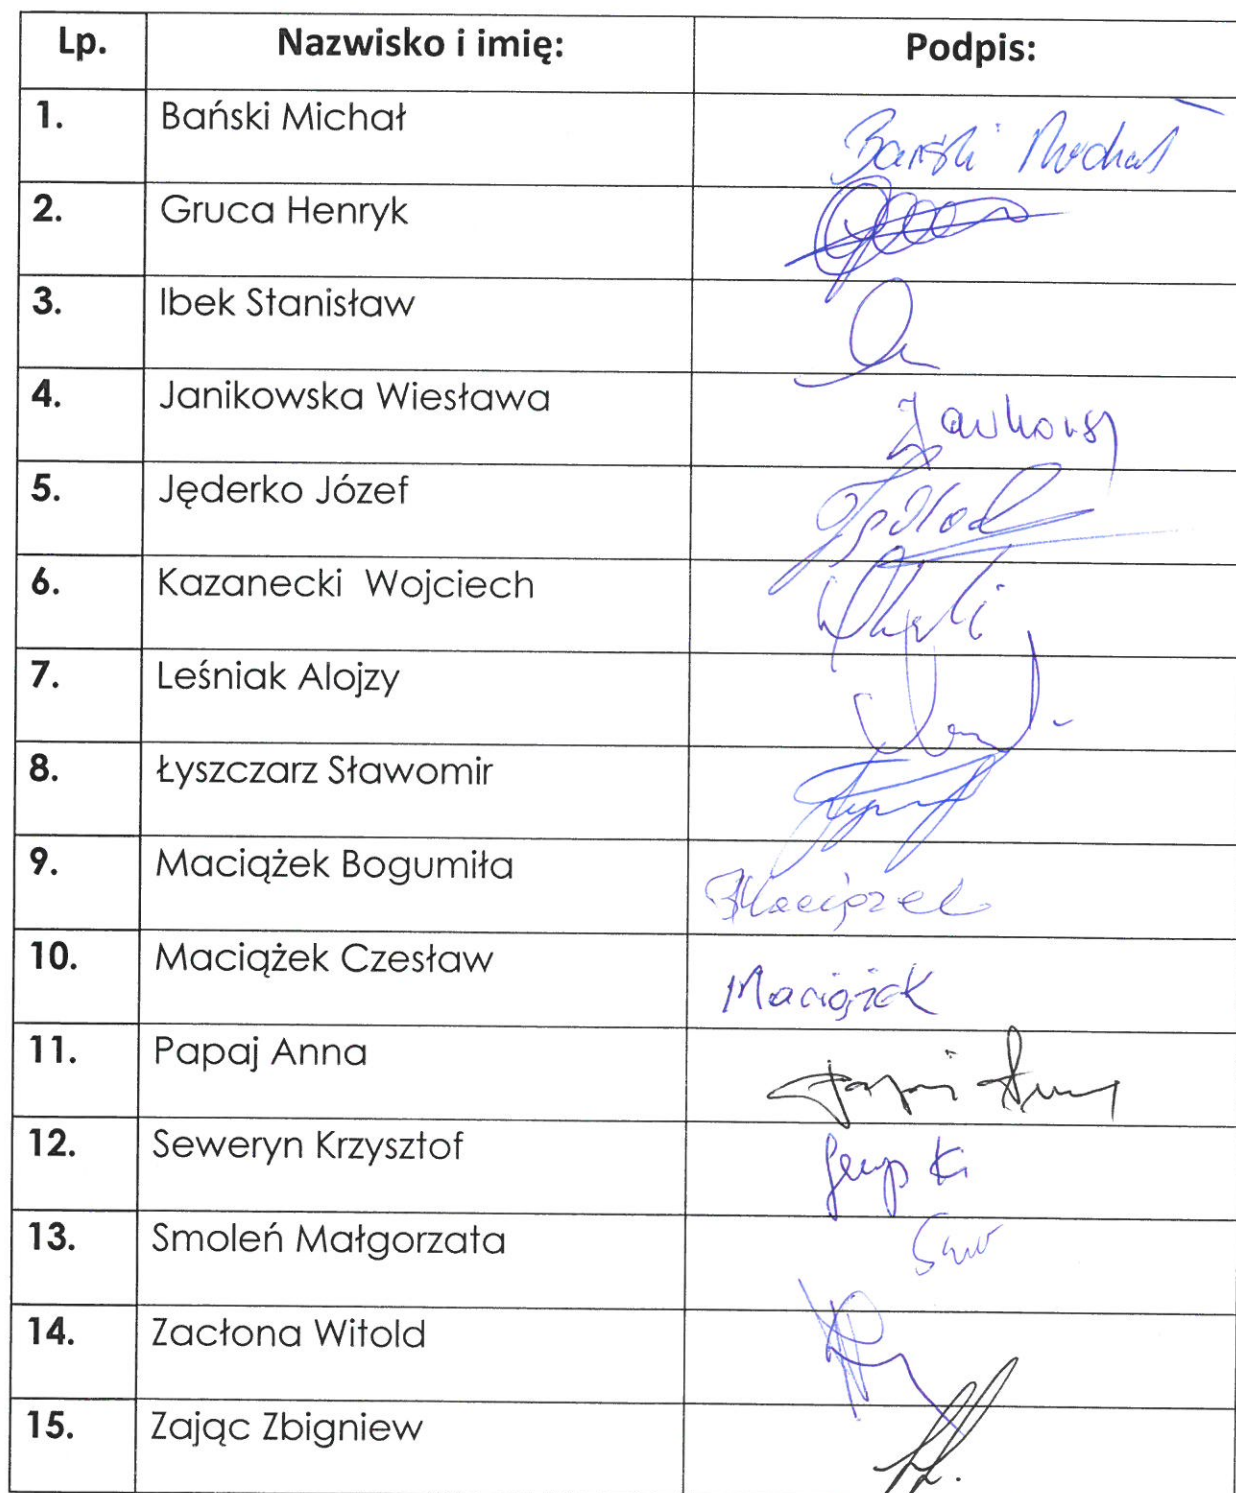 Lp. Nazwisko i imię: Podpis:
1. Bański Michał Bański Michał
2. Gruca Henryk
3. Ibek Stanisław
4. Janikowska Wiesława
5. Jęderko Józef
6. Kazanecki Wojciech
7. Leśniak Alojzy
8. Łyszczarz Sławomir
9. Maciążek Bogumiła BMaciążek
10. Maciążek Czesław Maciążek
11. Papaj Anna Papaj Anna
12. Seweryn Krzysztof
13. Smoleń Małgorzata
14. Zacłona Witold
15. Zając Zbigniew